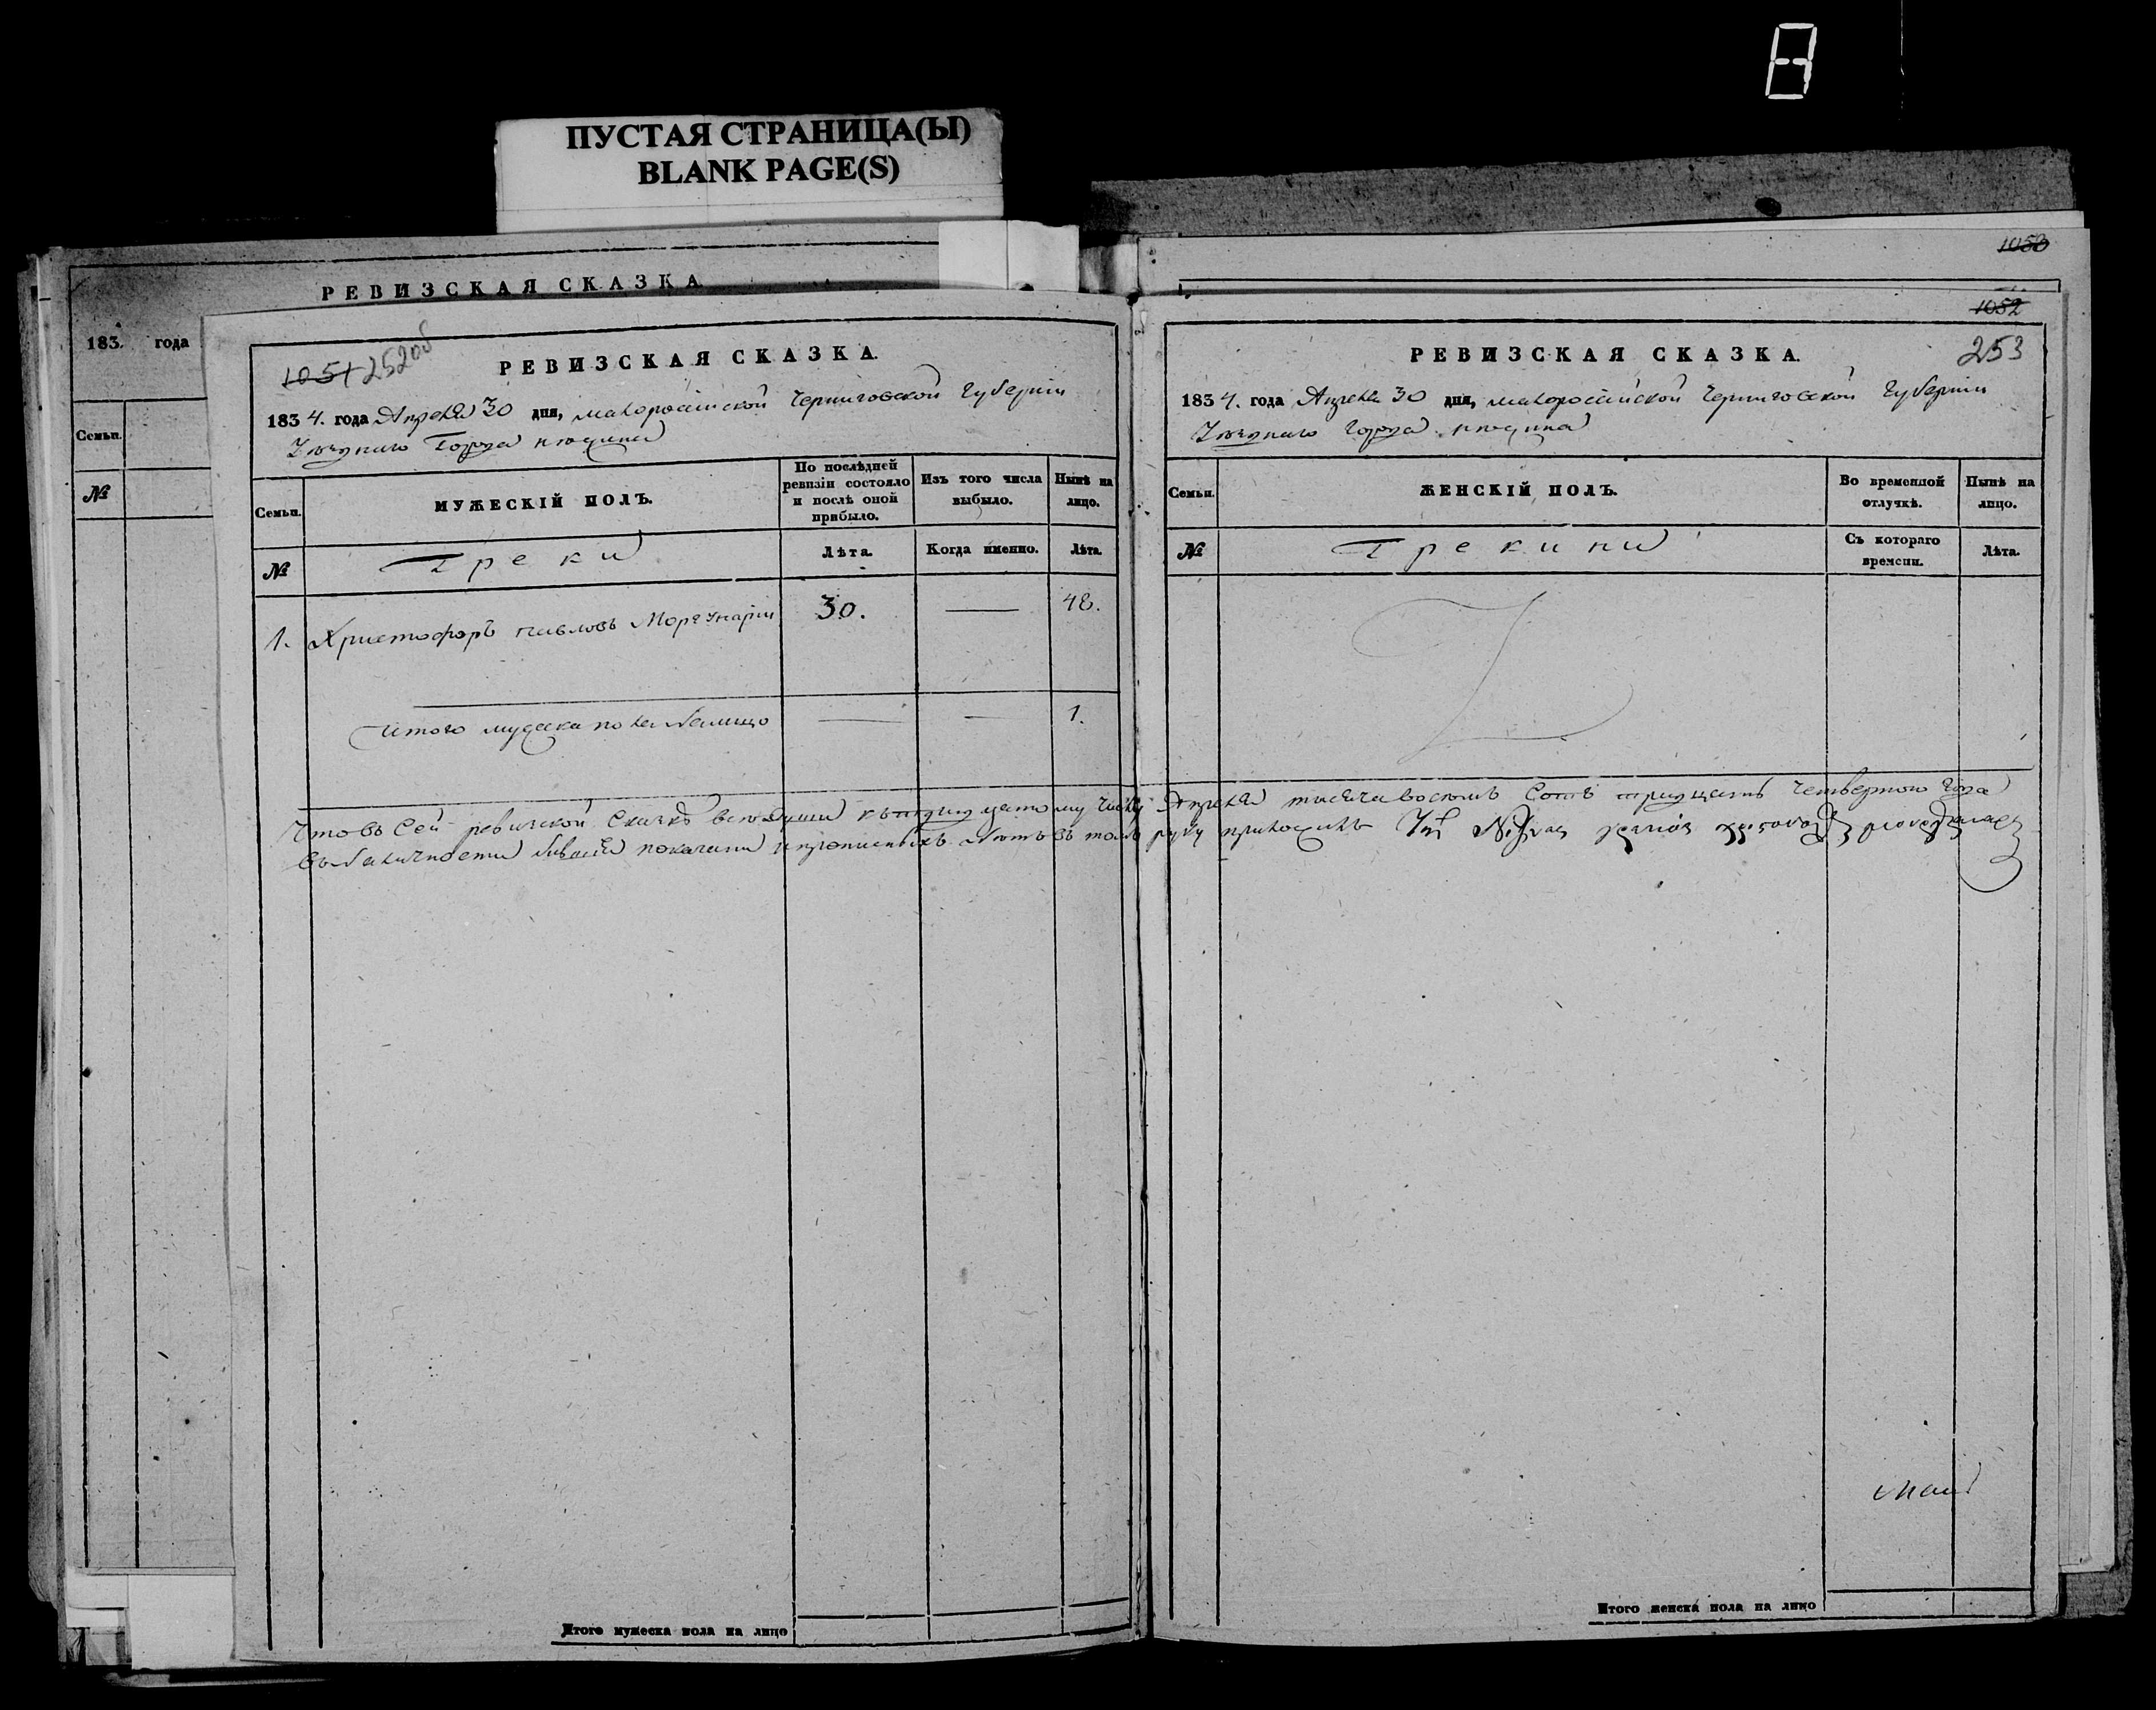 ПУСТАЯ СТРАНИЦА(Ы)
BLANK PAGE(S)
РЕВИЗСКАЯ СКАЗКА
183. года
Семьи.
№
1051 252об
РЕВИЗСКАЯ СКАЗКА.
1834. года Апреля 30 дня, малоросійской Черниговской Губерніи
Уезднаго Города нежина
Семьи.
МУЖЕСКІЙ ПОЛЪ.
По послѣдней ревизіи состояло и послѣ оной прибыло.
Изъ того числа выбыло.
Нынѣ на лицо.
№
Греки
Лѣта.
Когда именно.
Лѣта.
1. Христофоръ павловъ 30. — 48.
Итого мужеска пола налицо — — 1.
Итого мужеска пола на лицо
1053
1052
253
РЕВИЗСКАЯ СКАЗКА.
1834. года Апреля 30 дня, малоросійской Черниговской Губерніи
Уезднаго Города нежина
Семьи.
ЖЕНСКІЙ ПОЛЪ.
Во временной отлучкѣ.
Нынѣ на лицо.
№
Грекини
Съ котораго времени.
Лѣта.
Что въ Сей ревизской Сказкѣ все души къ тридцатому числу Апреля тисяча восемь Сотъ тридцать Четвертого Года
въ наличности показани въ томъ руку
Итого женска пола на лицо